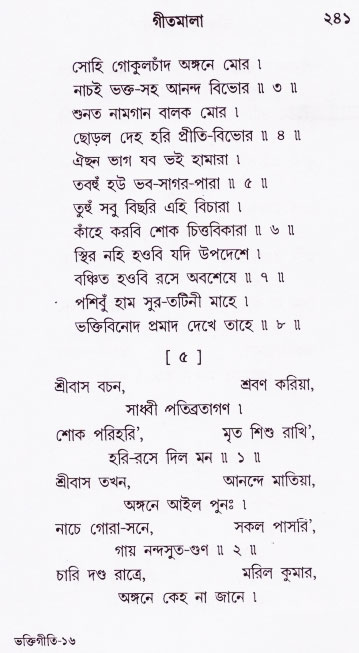 গীতমালা ২৪১
সোহি গোকুলচাঁদ অঙ্গনে মোর ।
নাচই ভক্ত-সহ আনন্দ বিভোর ॥ ৩ ॥
শুনত নামগান বালক মোর ।
ছোড়ল দেহ হরি প্রীতি-বিভোর ॥ ৪ ॥
ঐছন ভাগ যব ভই হামারা ।
তবহুঁ হউ ভব-সাগর-পারা ॥ ৫ ॥
তুহুঁ সবু বিছরি এহি বিচারা ।
কাঁহে করবি শোক চিত্তবিকারা ॥ ৬ ॥
স্থির নহি হওবি যদি উপদেশে ।
বঞ্চিত হওবি রসে অবশেষে ॥ ৭ ॥
পশিবুঁ হাম সুর-তটিনী মাহে ।
ভক্তিবিনোদ প্রমাদ দেখে তাহে ॥ ৮ ॥
[ ৫ ]
শ্রীবাস বচন, শ্রবণ করিয়া,
সাধ্বী পতিব্রতাগণ ।
শোক পরিহরি', মৃত শিশু রাখি',
হরি-রসে দিল মন ॥ ১ ॥
শ্রীবাস তখন, আনন্দে মাতিয়া,
অঙ্গনে আইল পুনঃ ।
নাচে গোরা-সনে, সকল পাসরি',
গায় নন্দসুত-গুণ ॥ ২ ॥
চারি দণ্ড রাত্রে, মরিল কুমার,
অঙ্গনে কেহ না জানে ।
ভক্তিগীতি-১৬